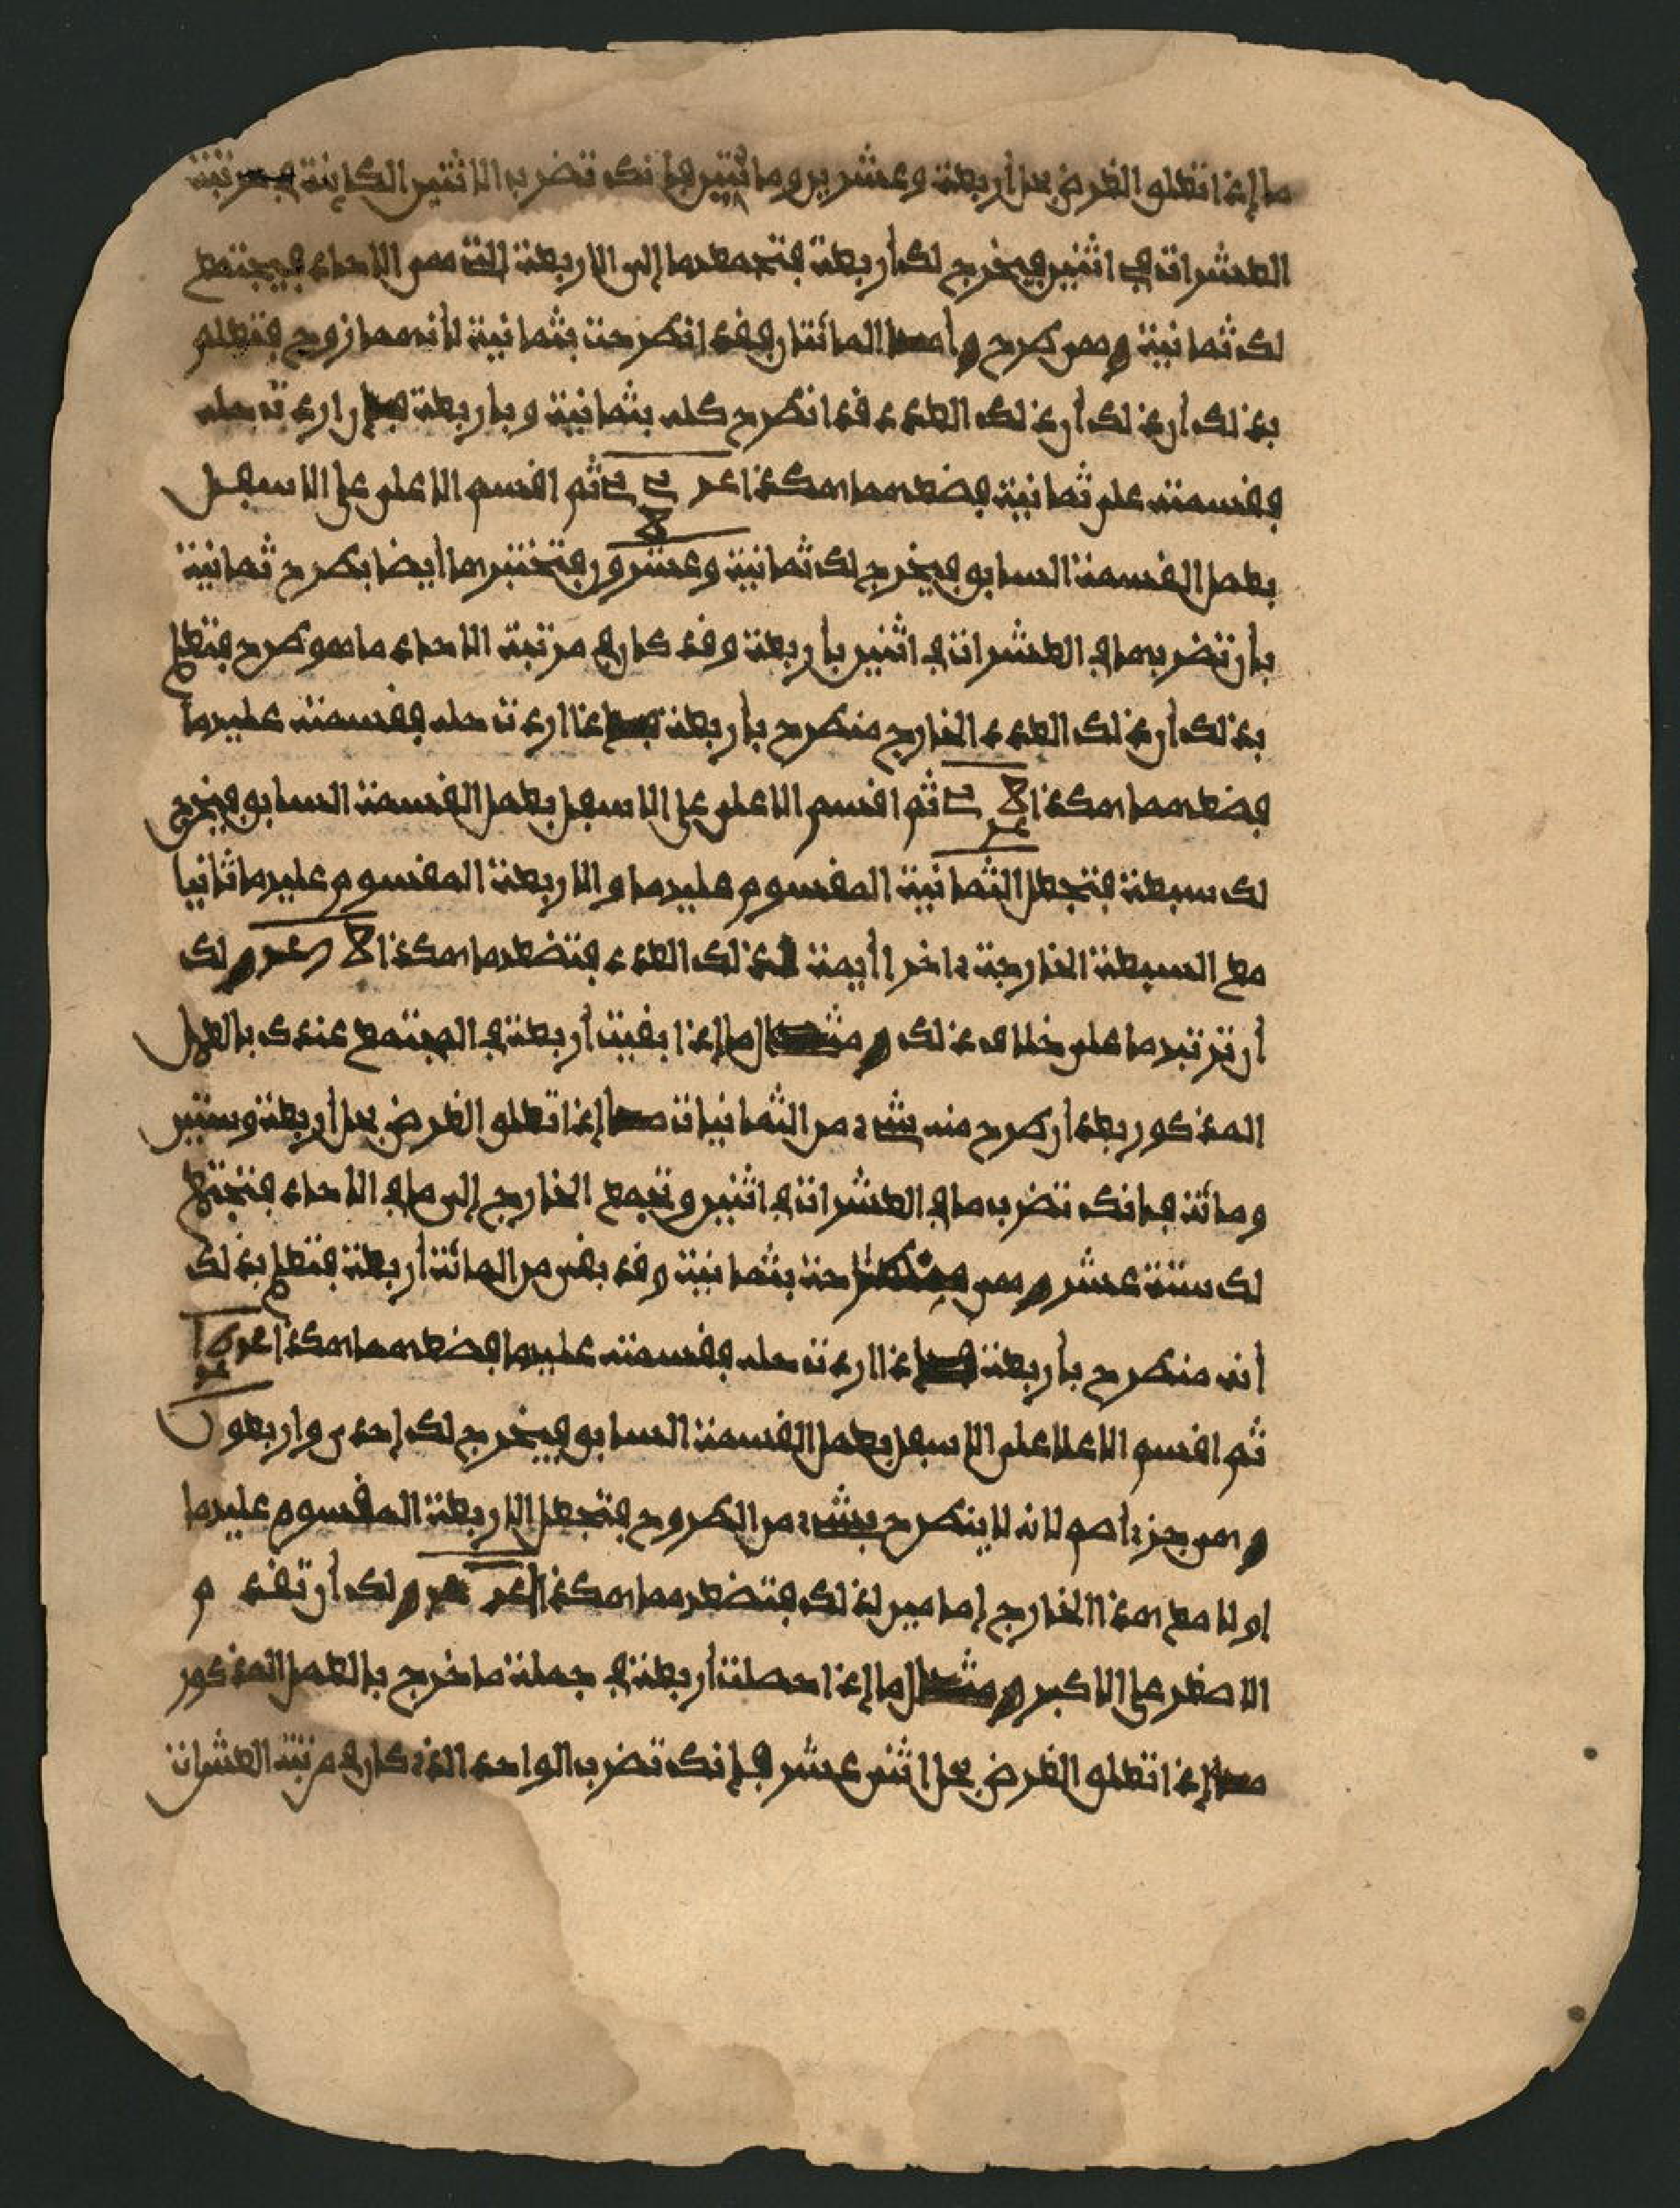 ما إذا تعلق الغرض بحل أربعة وعشرين ومائتين فإنك تضرب الاثنين الكائنة في مرتبة
العشرات في اثنين فيخرج لك أربعة فتجمعها إلى الاربعة التي هي الاحاد فيجتمع
لك ثمانية وهي طرح وأما المائتان فقد انطرحت بثمانية لأنهما زوج فتعلم
بذلك أن ذلك العدد قد انطرح كله بثمانية وباربعة فإن اردت حله
فقسمته على ثمانية فضعهما هكذا ٢٢٤ ثم اقسم الاعلى على الاسفل
٨
بعمل القسمة السابق فيخرج لك ثمانية وعشرون فتختبرها أيضا بطرح ثمانية
بأن تضرب ما في العشرات في اثنين بأربعة وقد كان في مرتبة الاحاد ما هو طرح فتعلم
بذلك أن ذلك العدد الخارج منطرح بأربعة فإذا اردت حله فقسمته عليها
فضعهما هكذا ٢٨ ثم اقسم الاعلى على الاسفل بعمل القسمة السابق فيخرج
٤
لك سبعة فتجعل الثمانية المقسوم عليها والاربعة المقسوم عليها ثانيا
مع السبعة الخارجة ءاخرا أيمة لذلك العدد فتضعها هكذا ٨ ٧ ٤ ولك
أن ترتبها على خلاف ذلك ومثال ما إذا بقيت أربعة في المجتمع عندك بالعمل
المذكور بعد أن طرح منه شيء من الثمانيات ما إذا تعلق الغرض بحل أربعة وستين
ومائة فإنك تضرب ما في العشرات في اثنين وتجمع الخارج إلى ما في الاحاد فتجتمع
لك ستة عشر وهي منطرحة بثمانية وقد بقي من المائة أربعة فتعلم بذلك
أنه منطرح بأربعة فإذا اردت حله فقسمته عليها فضعهما هكذا ١٦٤
٤
ثم اقسم الاعلا على الاسفل بعمل القسمة السابق فيخرج لك إحدى واربعون
وهي جزء أصم لانه لا ينطرح بشيء من الطروح فتجعل الاربعة المقسوم عليها
اولا مع هذا الخارج إمامين لذلك فتضعهما هكذا ٤١ ٤ ولك أن تقدم
الاصغر على الاكبر ومثال ما إذا حصلت أربعة في جملة ما خرج بالعمل المذكور
ما إذا تعلق الغرض بحل اثني عشر فإنك تضرب الواحد الذي كان في مرتبة العشرات